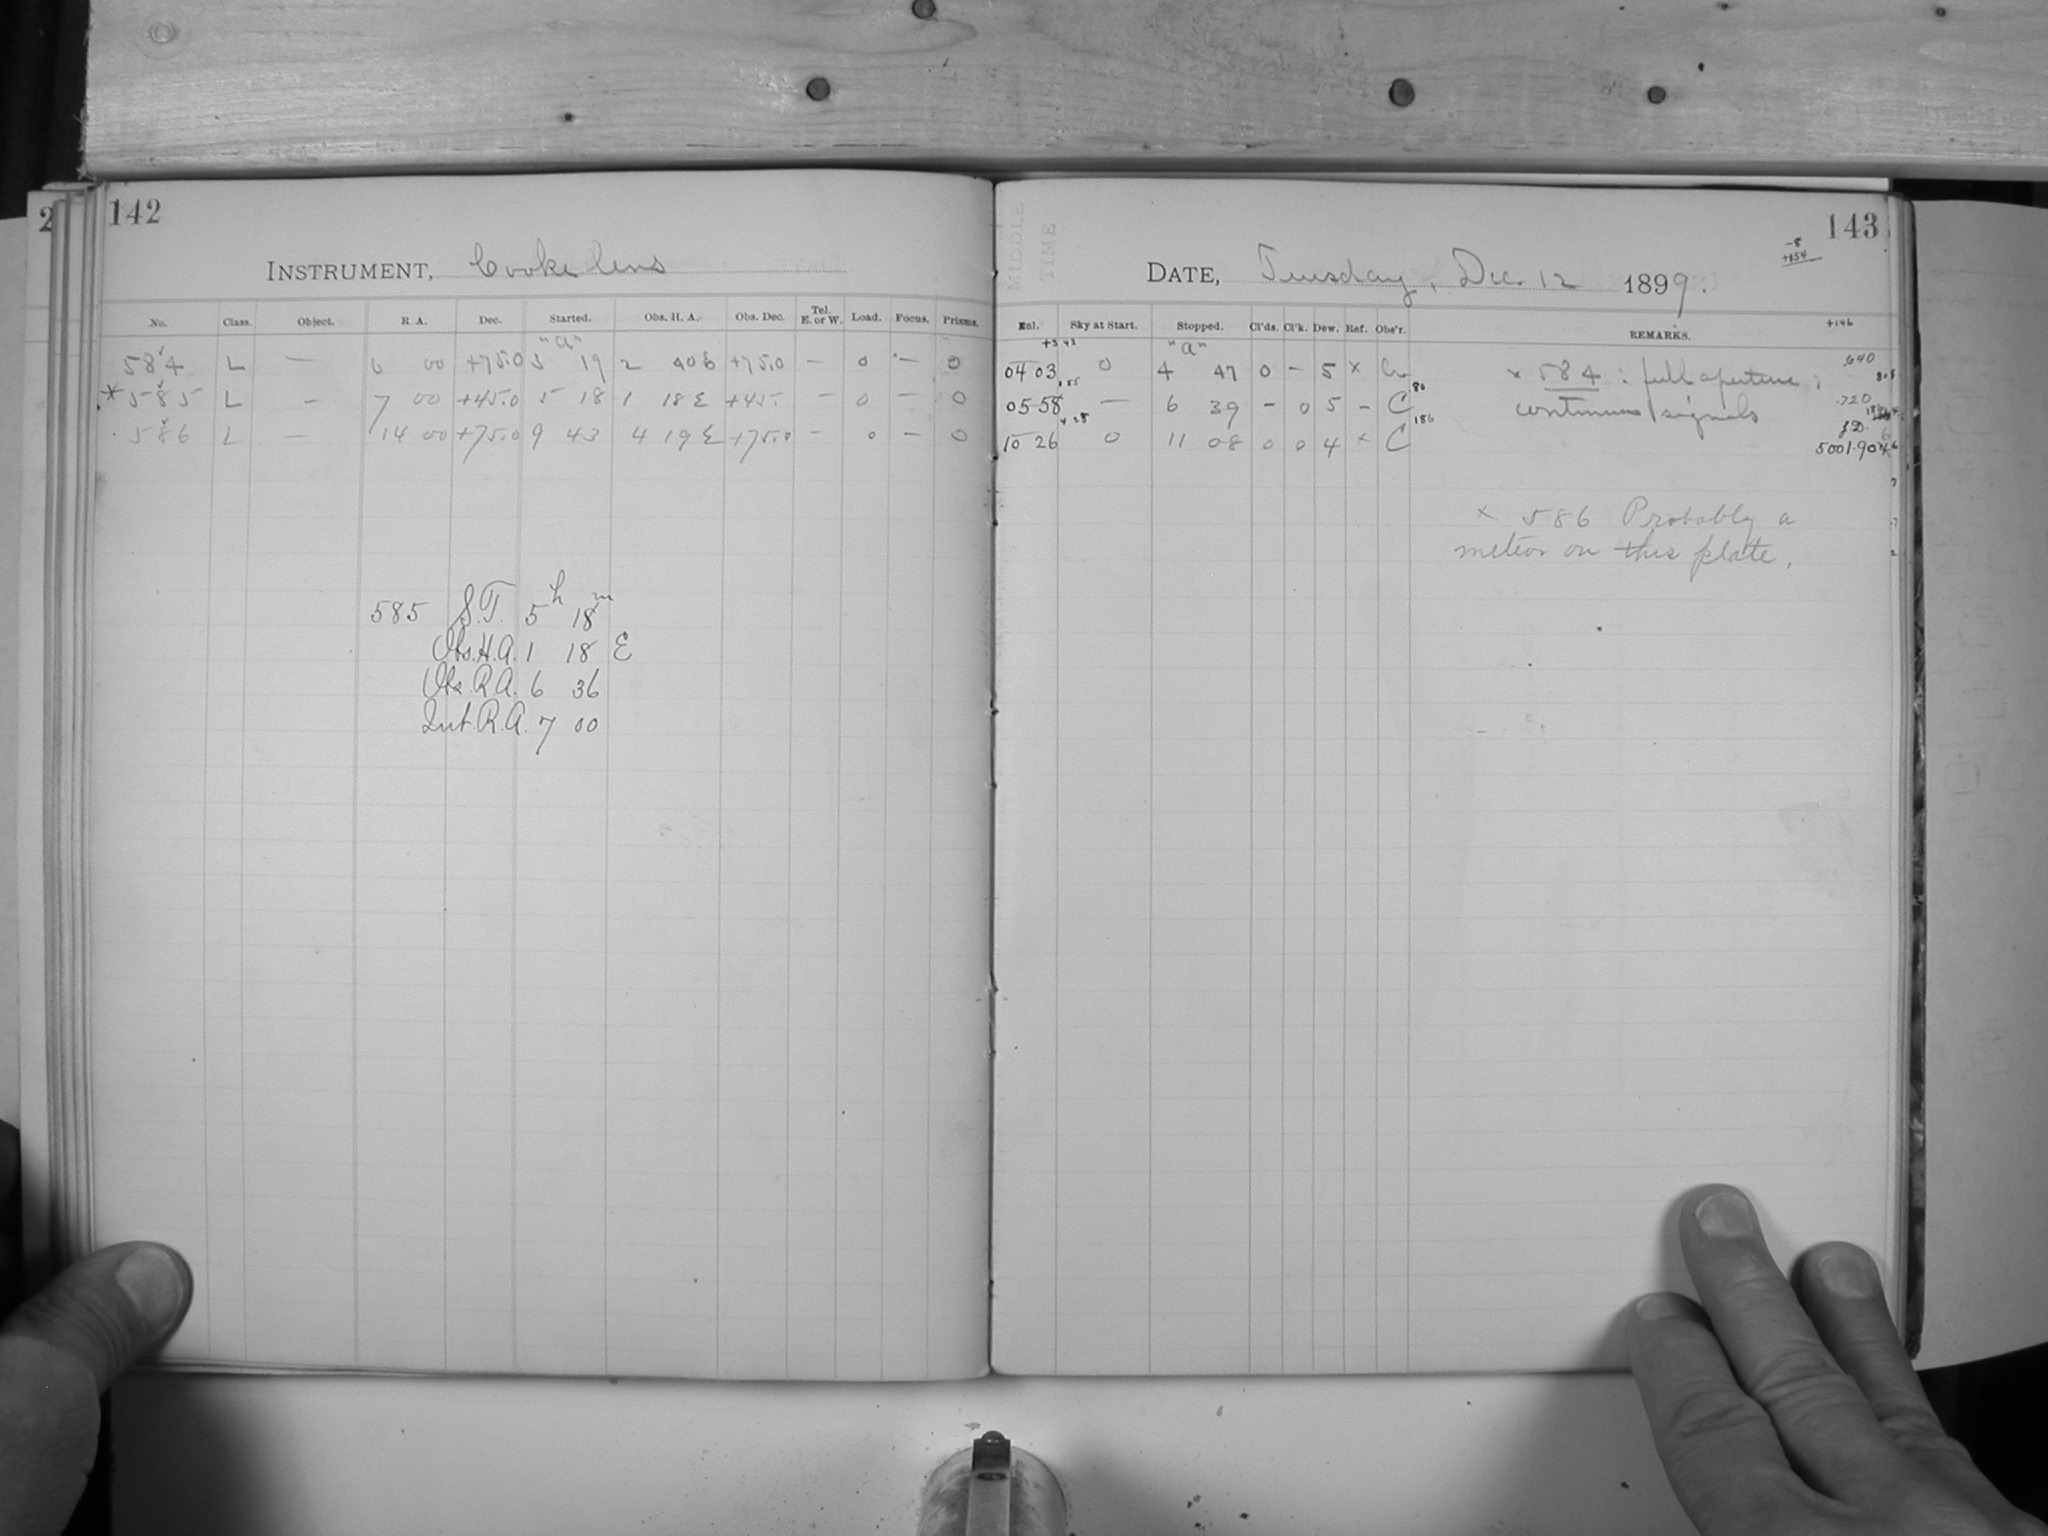 2
142
143
-8
+154
INSTRUMENT, Cooke lens
DATE, Tuesday, Dec. 12 1899.
MIDDLE
TIME
No. Class. Object. R. A. Dec. Started. Obs. H. A. Obs. Dec. Tel. E. or W. Load. Focus. Prisms.
Enl. Sky at Start. Stopped. Cl'ds. Cl'k. Dew. Ref. Obs'r. REMARKS. +146
"a"
"a"
584 L — 6 00 +75.0 5 19 2 40 E +75.0 — 0 — 0
04 03 0 4 47 0 — 5 x
* 585 L — 7 00 +45.0 5 18 1 18 E +45. — 0 — 0
05 58 — 6 39 — 0 5 — C
586 L — 14 00 +75.0 9 43 4 19 E +75.0 — 0 — 0
10 26 0 11 08 0 0 4 x C
x 584 : full aperture ;
continuous signals
.640
.720
J.D.
x 586 Probably a
meteor on this plate.
585 S.T. 5h 18m
Obs. H.A. 1 18 E
Obs. R.A. 6 36
Int. R.A. 7 00